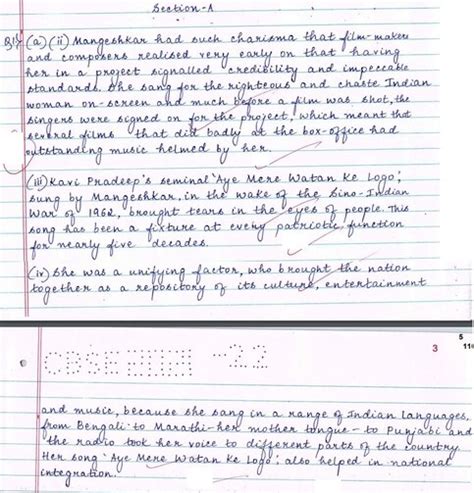 Section-A
Q1) (a) (ii) Mangeshkar had such charisma that film-makers
and composers realised very early on that having
her in a project signalled credibility and impeccable
standards. She sang for the righteous and chaste Indian
woman on-screen and much before a film was shot, the
singers were signed on for the project, which meant that
several films that did badly at the box-office had
outstanding music helmed by her.
(iii) Kavi Pradeep's seminal 'Aye Mere Watan Ke Logo',
sung by Mangeshkar, in the wake of the Sino-Indian
War of 1962, brought tears in the eyes of people. This
song has been a fixture at every patriotic function
for nearly five decades.
(iv) She was a unifying factor, who brought the nation
together as a repository of its culture, entertainment
CBSE -22
3
5
and music, because she sang in a range of Indian languages,
from Bengali to Marathi-her mother tongue-to Punjabi and
the radio took her voice to different parts of the country.
Her song 'Aye Mere Watan Ke Logo' also helped in national
integration.